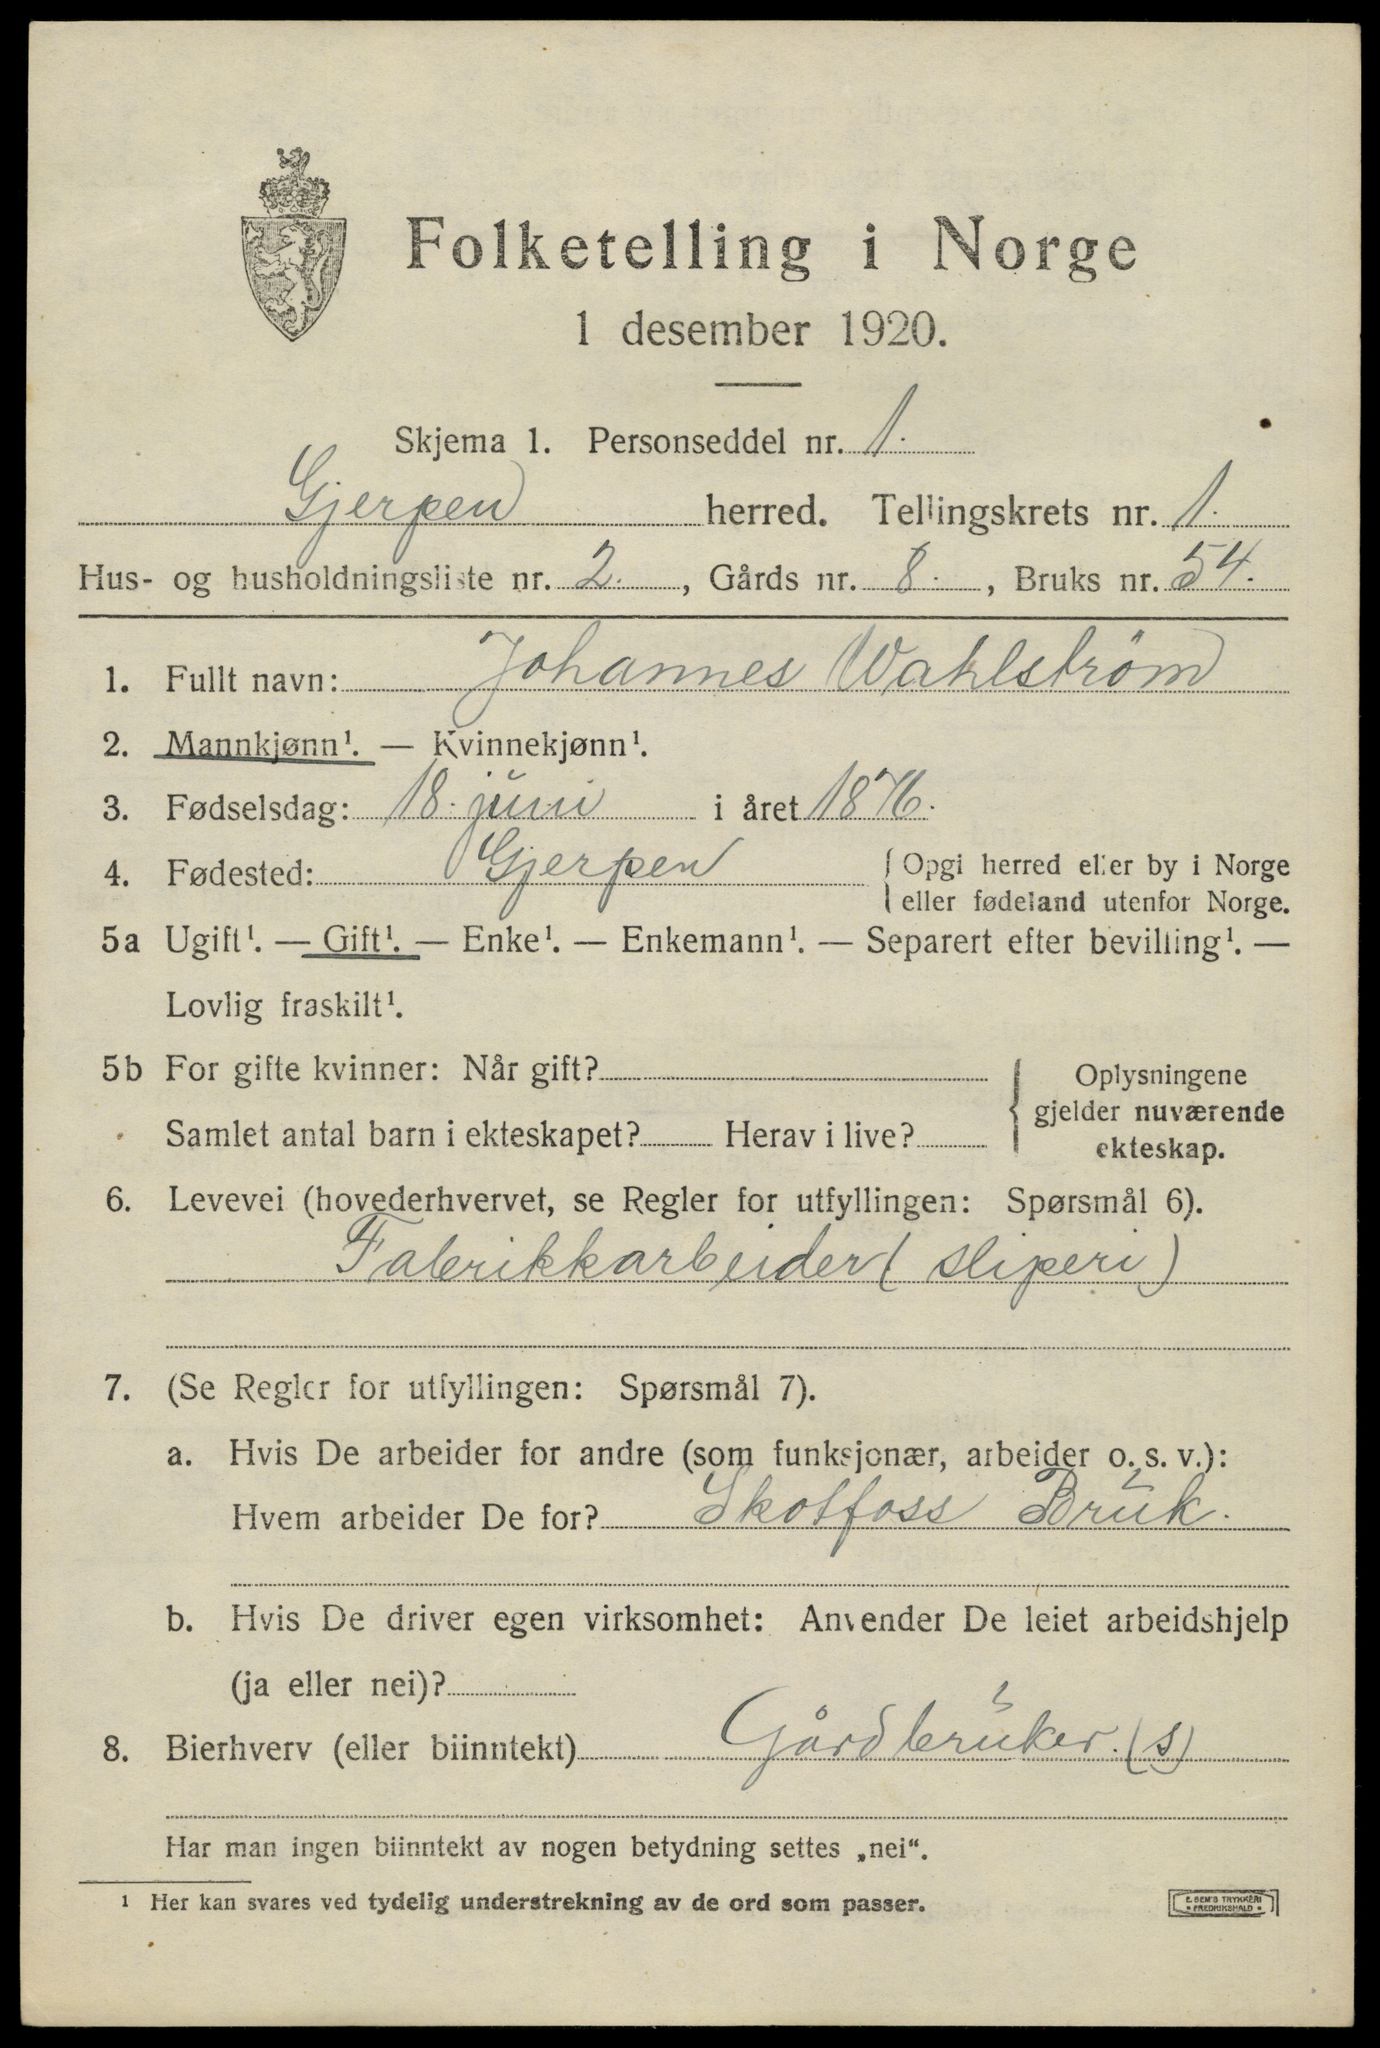 Folketelling i Norge
1 desember 1920.
Skjema 1. Personseddel nr. 1.
Gjerpen herred. Tellingskrets nr. 1.
Hus- og husholdningsliste nr. 2. , Gårds nr. 8. , Bruks nr. 54.
1. Fullt navn: Johannes Wahlström
2. Mannkjønn¹. — Kvinnekjønn¹.
3. Fødselsdag: 18. juni i året 1876.
4. Fødested: Gjerpen { Opgi herred eller by i Norge
eller fødeland utenfor Norge.
5a Ugift¹. — Gift¹. — Enke¹. — Enkemann¹. — Separert efter bevilling¹. —
Lovlig fraskilt¹.
5b For gifte kvinner: Når gift?
Samlet antal barn i ekteskapet? Herav i live?
{ Oplysningene
gjelder nuværende
ekteskap.
6. Levevei (hovederhvervet, se Regler for utfyllingen: Spørsmål 6).
Fabrikkarbeider (sliperi)
7. (Se Regler for utfyllingen: Spørsmål 7).
a. Hvis De arbeider for andre (som funksjonær, arbeider o. s. v.):
Hvem arbeider De for? Skotfoss Bruk.
b. Hvis De driver egen virksomhet: Anvender De leiet arbeidshjelp
(ja eller nei)?
8. Bierhverv (eller biinntekt) Gårdbruker. (s)
Har man ingen biinntekt av nogen betydning settes „nei“.
¹ Her kan svares ved tydelig understrekning av de ord som passer.
E. SEM'S TRYKKERI
FREDRIKSHALD